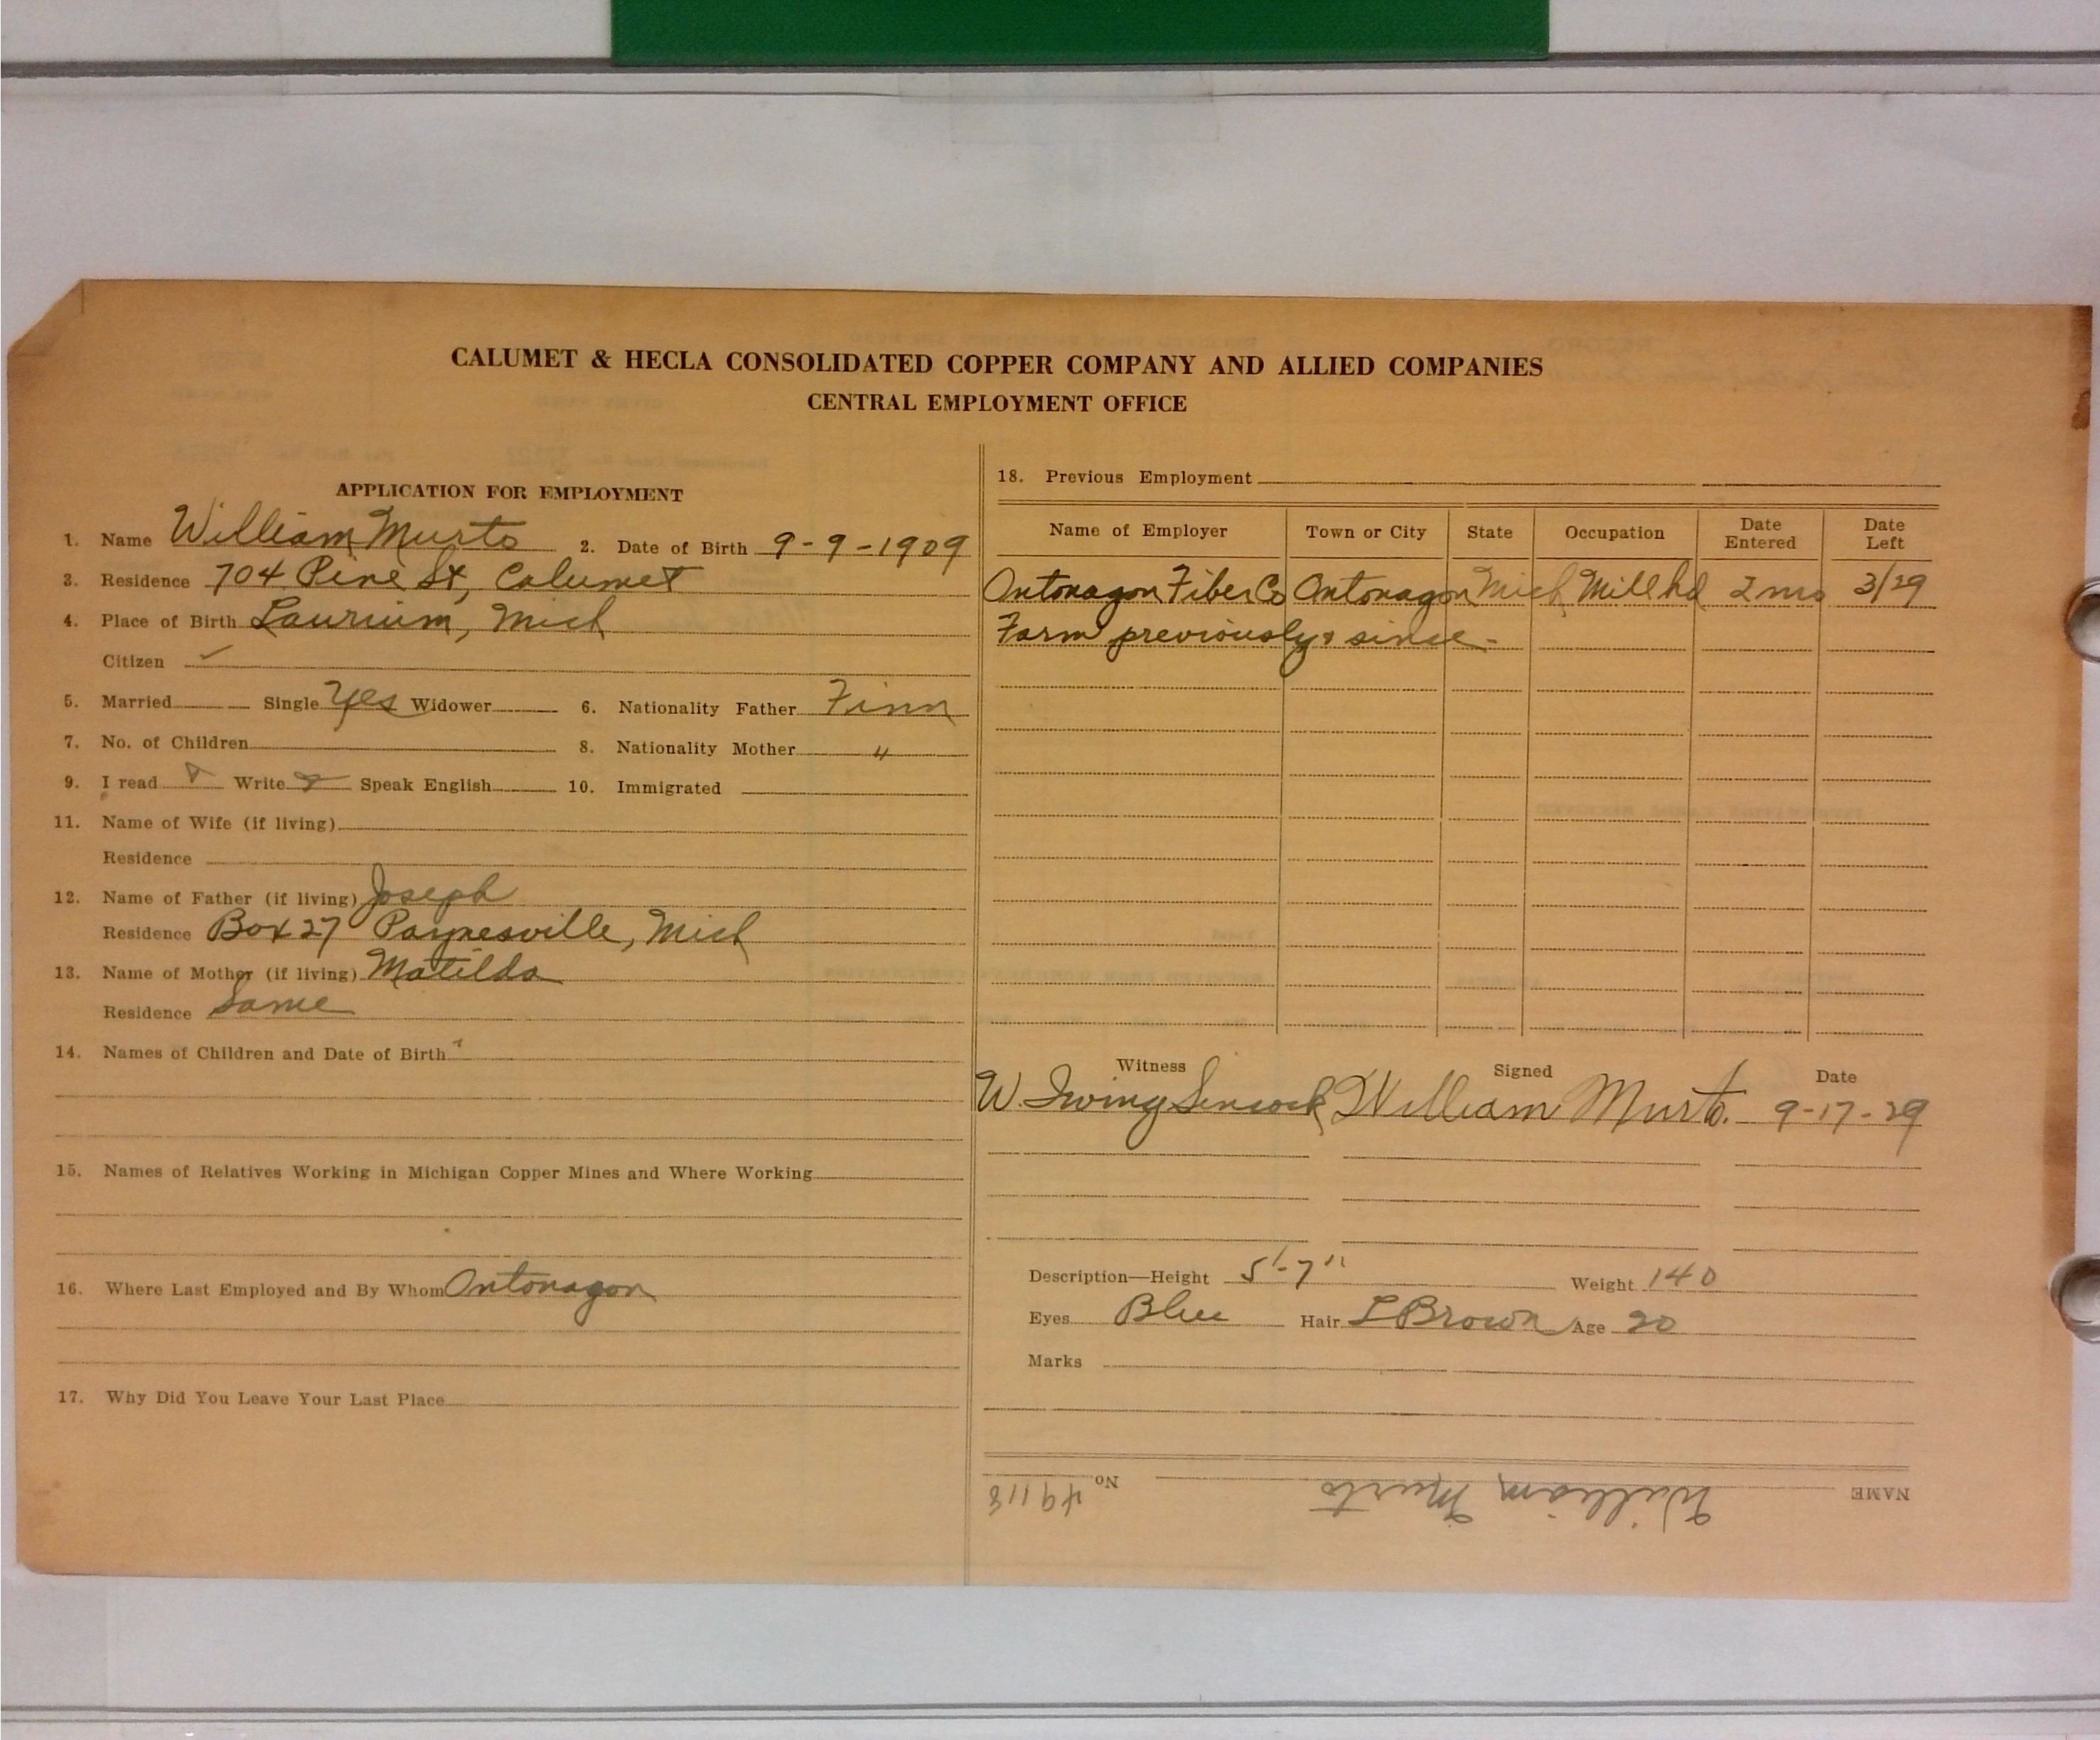 CALUMET & HECLA CONSOLIDATED COPPER COMPANY AND ALLIED COMPANIES
CENTRAL EMPLOYMENT OFFICE
APPLICATION FOR EMPLOYMENT
1. Name William Murto 2. Date of Birth 9-9-1909
3. Residence 704 Pine St, Calumet
4. Place of Birth Laurium, Mich
Citizen ✓
5. Married Single Yes Widower 6. Nationality Father Finn
7. No. of Children 8. Nationality Mother "
9. I read Write Speak English 10. Immigrated
11. Name of Wife (if living)
Residence
12. Name of Father (if living) Joseph
Residence Box 27 Paynesville, Mich
13. Name of Mother (if living) Matilda
Residence Same
14. Names of Children and Date of Birth
15. Names of Relatives Working in Michigan Copper Mines and Where Working
16. Where Last Employed and By Whom Ontonagon
17. Why Did You Leave Your Last Place
18. Previous Employment
Name of Employer Town or City State Occupation Date Entered Date Left
Ontonagon Fiber Co Ontonagon Mich Mill hd 2 mo 3/29
Farm previously & since-
Witness Signed Date
W. Irving William Murto. 9-17-29
Description—Height 5'-7" Weight 140
Eyes Blue Hair L Brown Age 20
Marks
NAME William Murto No 49118